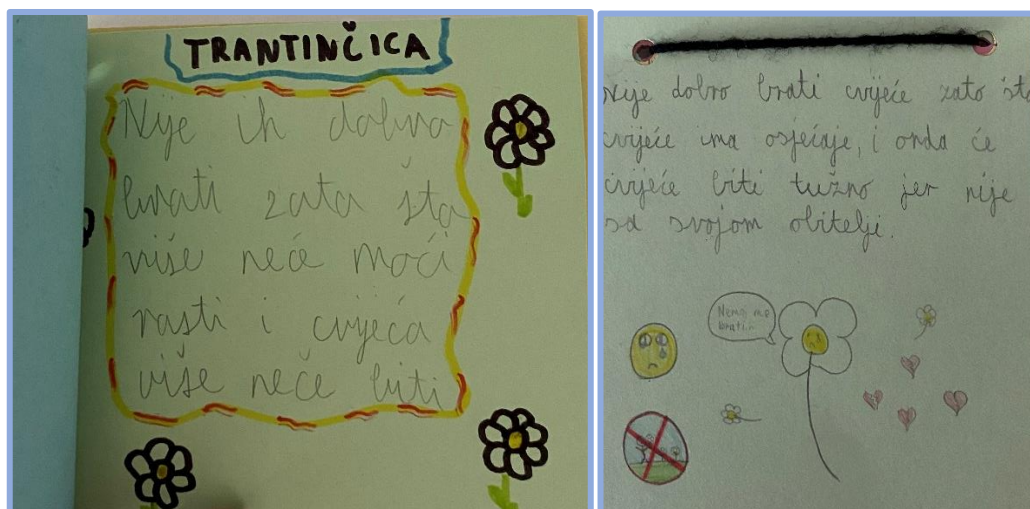 TRANTINČICA
Nije ih dobro
brati zato što
više neće moći
rasti i cvijeća
više neče biti
Nije dobro brati cvijeće zato što
cvijeće ima osjećaje, i onda će
cvijeće biti tužno jer nije
sa svojom obitelji.
Nemoj me
brati...